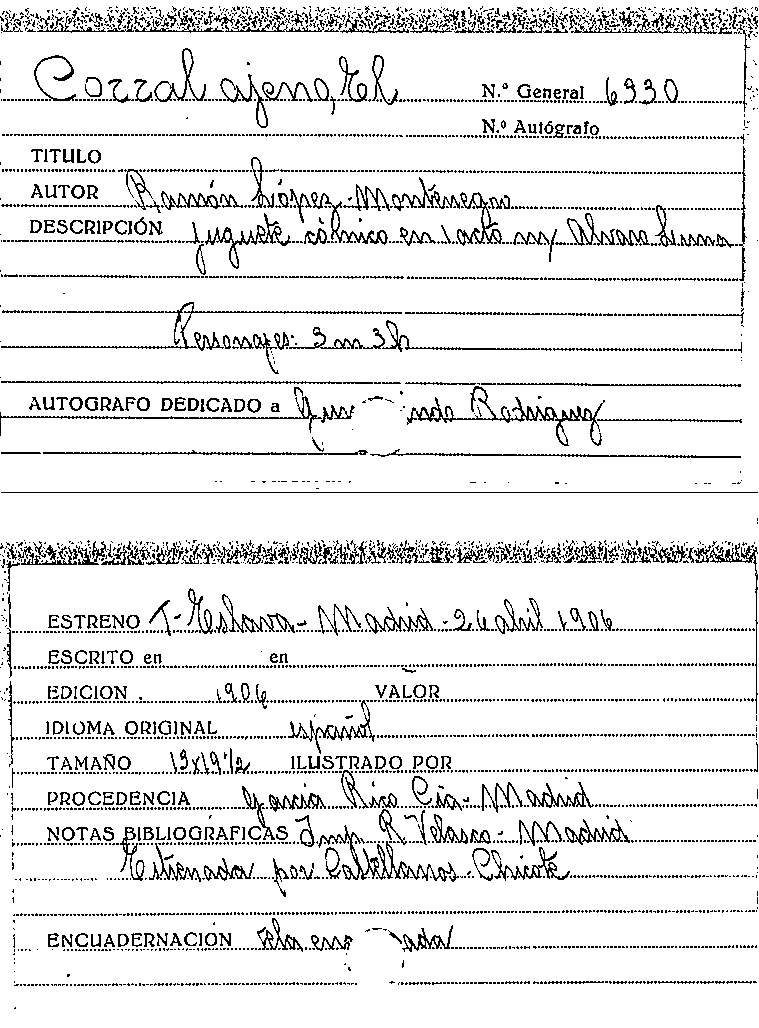 Corral ajeno, El N.º General 6930
N.º Autógrafo
TITULO
AUTOR Ramón López-Montenegro
DESCRIPCIÓN juguete cómico en 1 acto m/ Alvaro Luna
Personajes: 3 m 3 h
AUTOGRAFO DEDICADO a Rodriguez
ESTRENO T- Eslava - Madrid - 26 abril 1906
ESCRITO en en
EDICION . 1906 VALOR
IDIOMA ORIGINAL español
TAMAÑO 13x19½ ILUSTRADO POR
PROCEDENCIA Garcia Rico Cia - Madrid
NOTAS BIBLIOGRÁFICAS Imp. R Velasco - Madrid
Estrenada por Castellanos - Chicote
ENCUADERNACIÓN tela